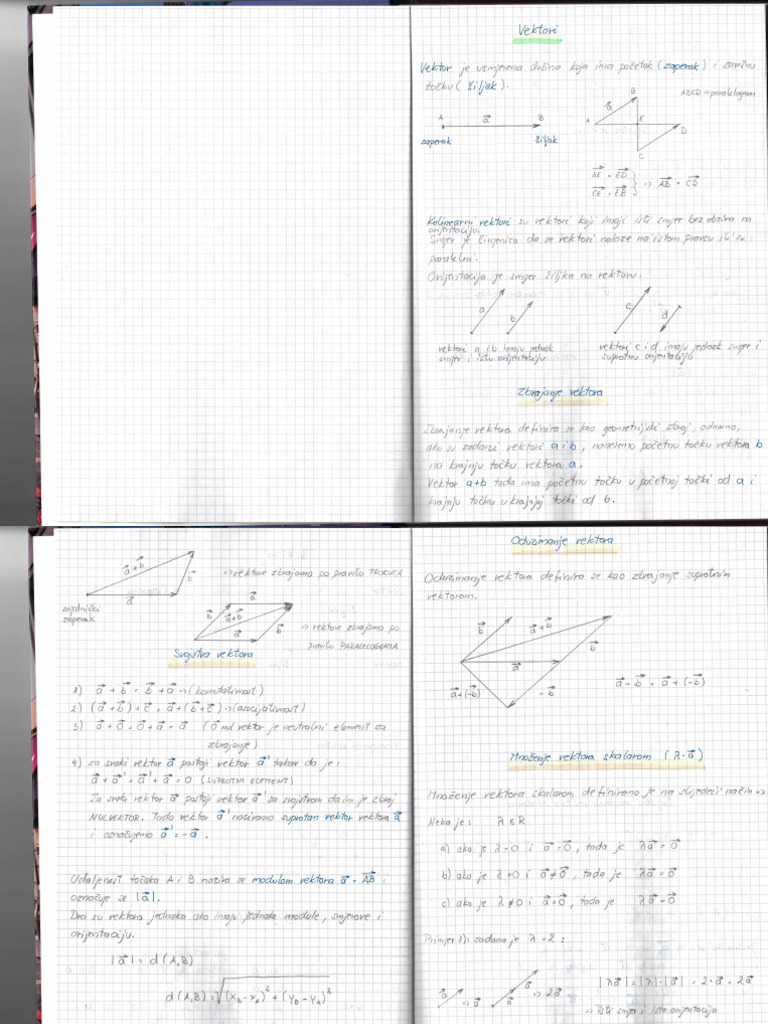 Vektori
Vektor je usmjerena dužina koja ima početak (zaperak) i završnu
točku (šiljak).
ABCD = paralelogram
A a⃗ B
zaperak šiljak
A B E D C
AE⃗ = ED⃗
CE⃗ = EB⃗ } => AB⃗ = CD⃗
Kolinearni vektori su vektori koji imaju isti smjer bez obzira na
orijentaciju.
Smjer je činjenica da se vektori nalaze na istom pravcu ili su
paralelni.
Orijentacija je smjer šiljka na vektoru.
a b c d
vektori a i b imaju jednak
smjer i istu orijentaciju
vektori c i d imaju jednak smjer i
suprotnu orijentaciju
Zbrajanje vektora
Zbrajanje vektora definira se kao geometrijski zbroj, odnosno,
ako su zadani vektori a i b, nanesemo početnu točku vektora b
na krajnju točku vektora a.
Vektor a+b tada ima početnu točku u početnoj točki od a i
krajnju točku u krajnjoj točki od b.
a⃗+b⃗ b⃗ a⃗
=> vektore zbrajamo po pravilu TROKUTA
zajednički
zaperak
b⃗ a⃗+b⃗ a⃗ b⃗
=> vektore zbrajamo po
pravilu PARALELOGRAMA
Svojstva vektora
1) a⃗ + b⃗ = b⃗ + a⃗ => (komutativnost)
2) (a⃗+b⃗)+c⃗ = a⃗+(b⃗+c⃗) => (asocijativnost)
3) a⃗+0⃗ = 0⃗+a⃗ = a⃗ (0⃗ nul vektor je neutralni element za
zbrajanje)
4) za svaki vektor a⃗ postoji vektor a⃗' takav da je:
a⃗+a⃗' = a⃗'+a⃗ = 0 (SUPROTNI ELEMENT)
Za svaki vektor a⃗ postoji vektor a⃗' sa svojstvom da im je zbroj
NULVEKTOR. Tada vektor a⃗' nazivamo suprotan vektor vektora a⃗
i označujemo a⃗' = -a⃗.
Udaljenost točaka A i B naziva se modulom vektora a⃗ = AB⃗ i
označuje se |a⃗|.
Dva su vektora jednaka ako imaju jednake module, smjerove i
orijentaciju.
|a⃗| = d(A,B)
d(A,B) = √((x_B-x_A)² + (y_B-y_A)²)
Oduzimanje vektora
Oduzimanje vektora definira se kao zbrajanje suprotnim
vektorom.
b⃗ a⃗+b⃗ b⃗
a⃗
a⃗+(-b⃗) -b⃗
a⃗-b⃗ = a⃗+(-b⃗)
Množenje vektora skalarom (λ·a⃗)
Množenje vektora skalarom definirano je na sljedeći način =>
Neka je: λ∈R
a) ako je λ=0 i a⃗=0⃗, tada je λa⃗=0⃗
b) ako je λ≠0 i a⃗≠0⃗, tada je λa⃗=0⃗
c) ako je λ≠0 i a⃗=0⃗, tada je λa⃗=0⃗
Primjer 1) zadana je λ=2:
a⃗ => a⃗ a⃗ a⃗ => 2a⃗
|λa⃗| = |λ|·|a⃗| = 2·a⃗ = 2a⃗
=> isti smjer i ista orijentacija